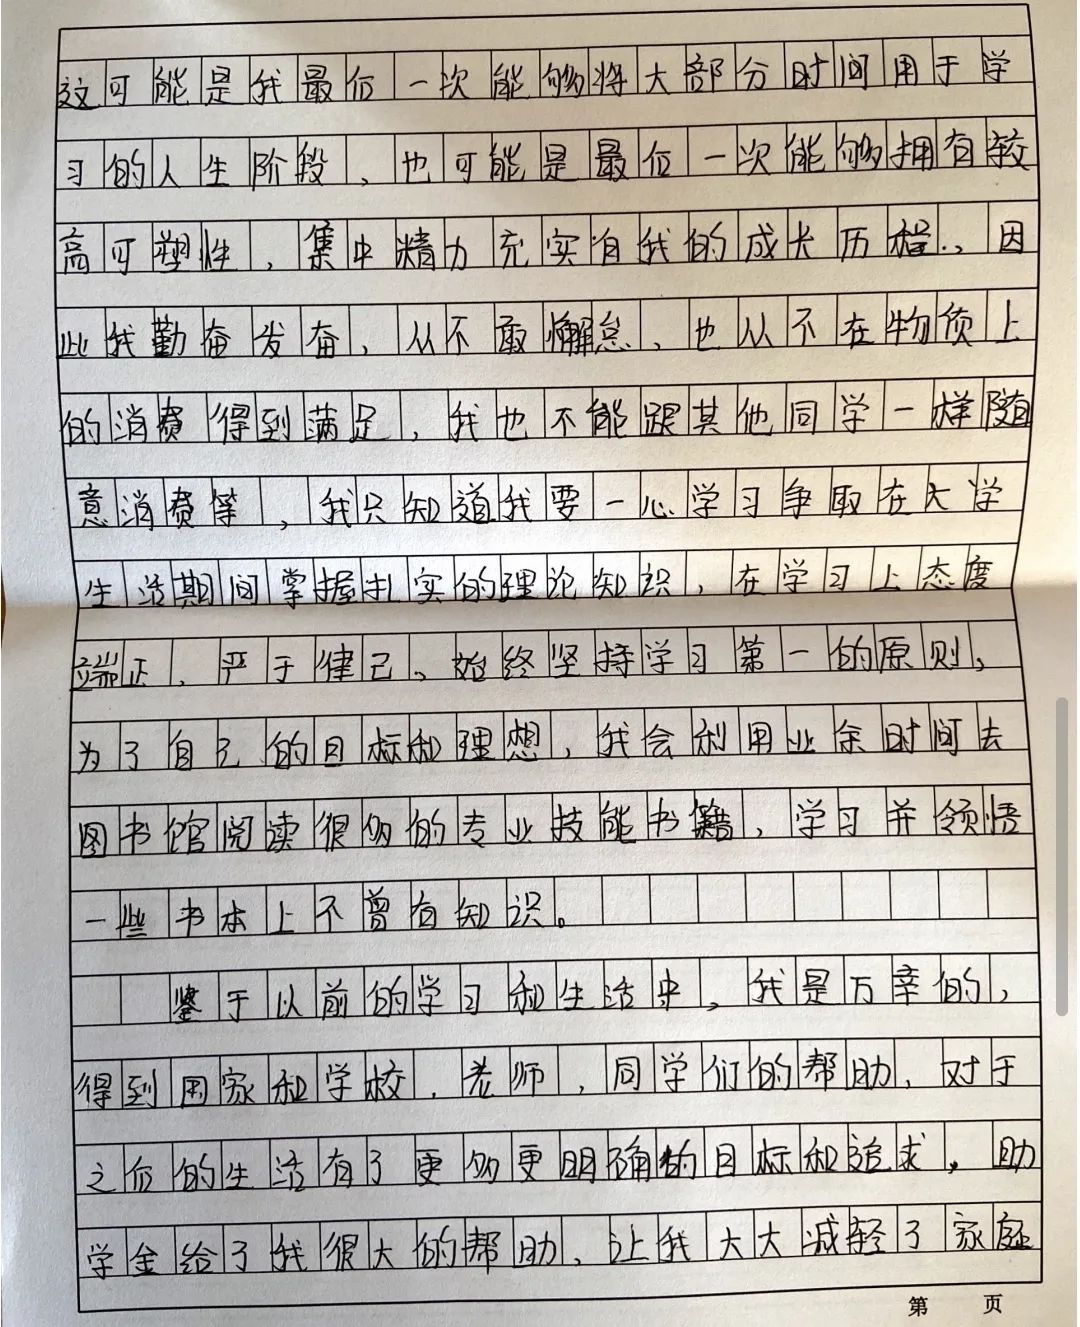 这可能是我最后一次能够将大部分时间用于学
习的人生阶段，也可能是最后一次能够拥有较
高可塑性，集中精力充实自我的成长历程.，因
此我勤奋发奋，从不敢懈怠，也从不在物质上
的消费得到满足，我也不能跟其他同学一样随
意消费等，我只知道我要一心学习争取在大学
生活期间掌握扎实的理论知识，在学习上态度
端正，严于律己、始终坚持学习第一的原则，
为了自己的目标和理想，我会利用业余时间去
图书馆阅读很多的专业技能书籍，学习并领悟
一些书本上不曾有知识。
鉴于以前的学习和生活中，我是万幸的，
得到用家和学校．老师，同学们的帮助，对于
之后的生活有了更多更明确的目标和追求，助
学金给了我很大的帮助，让我大大减轻了家庭
第 页